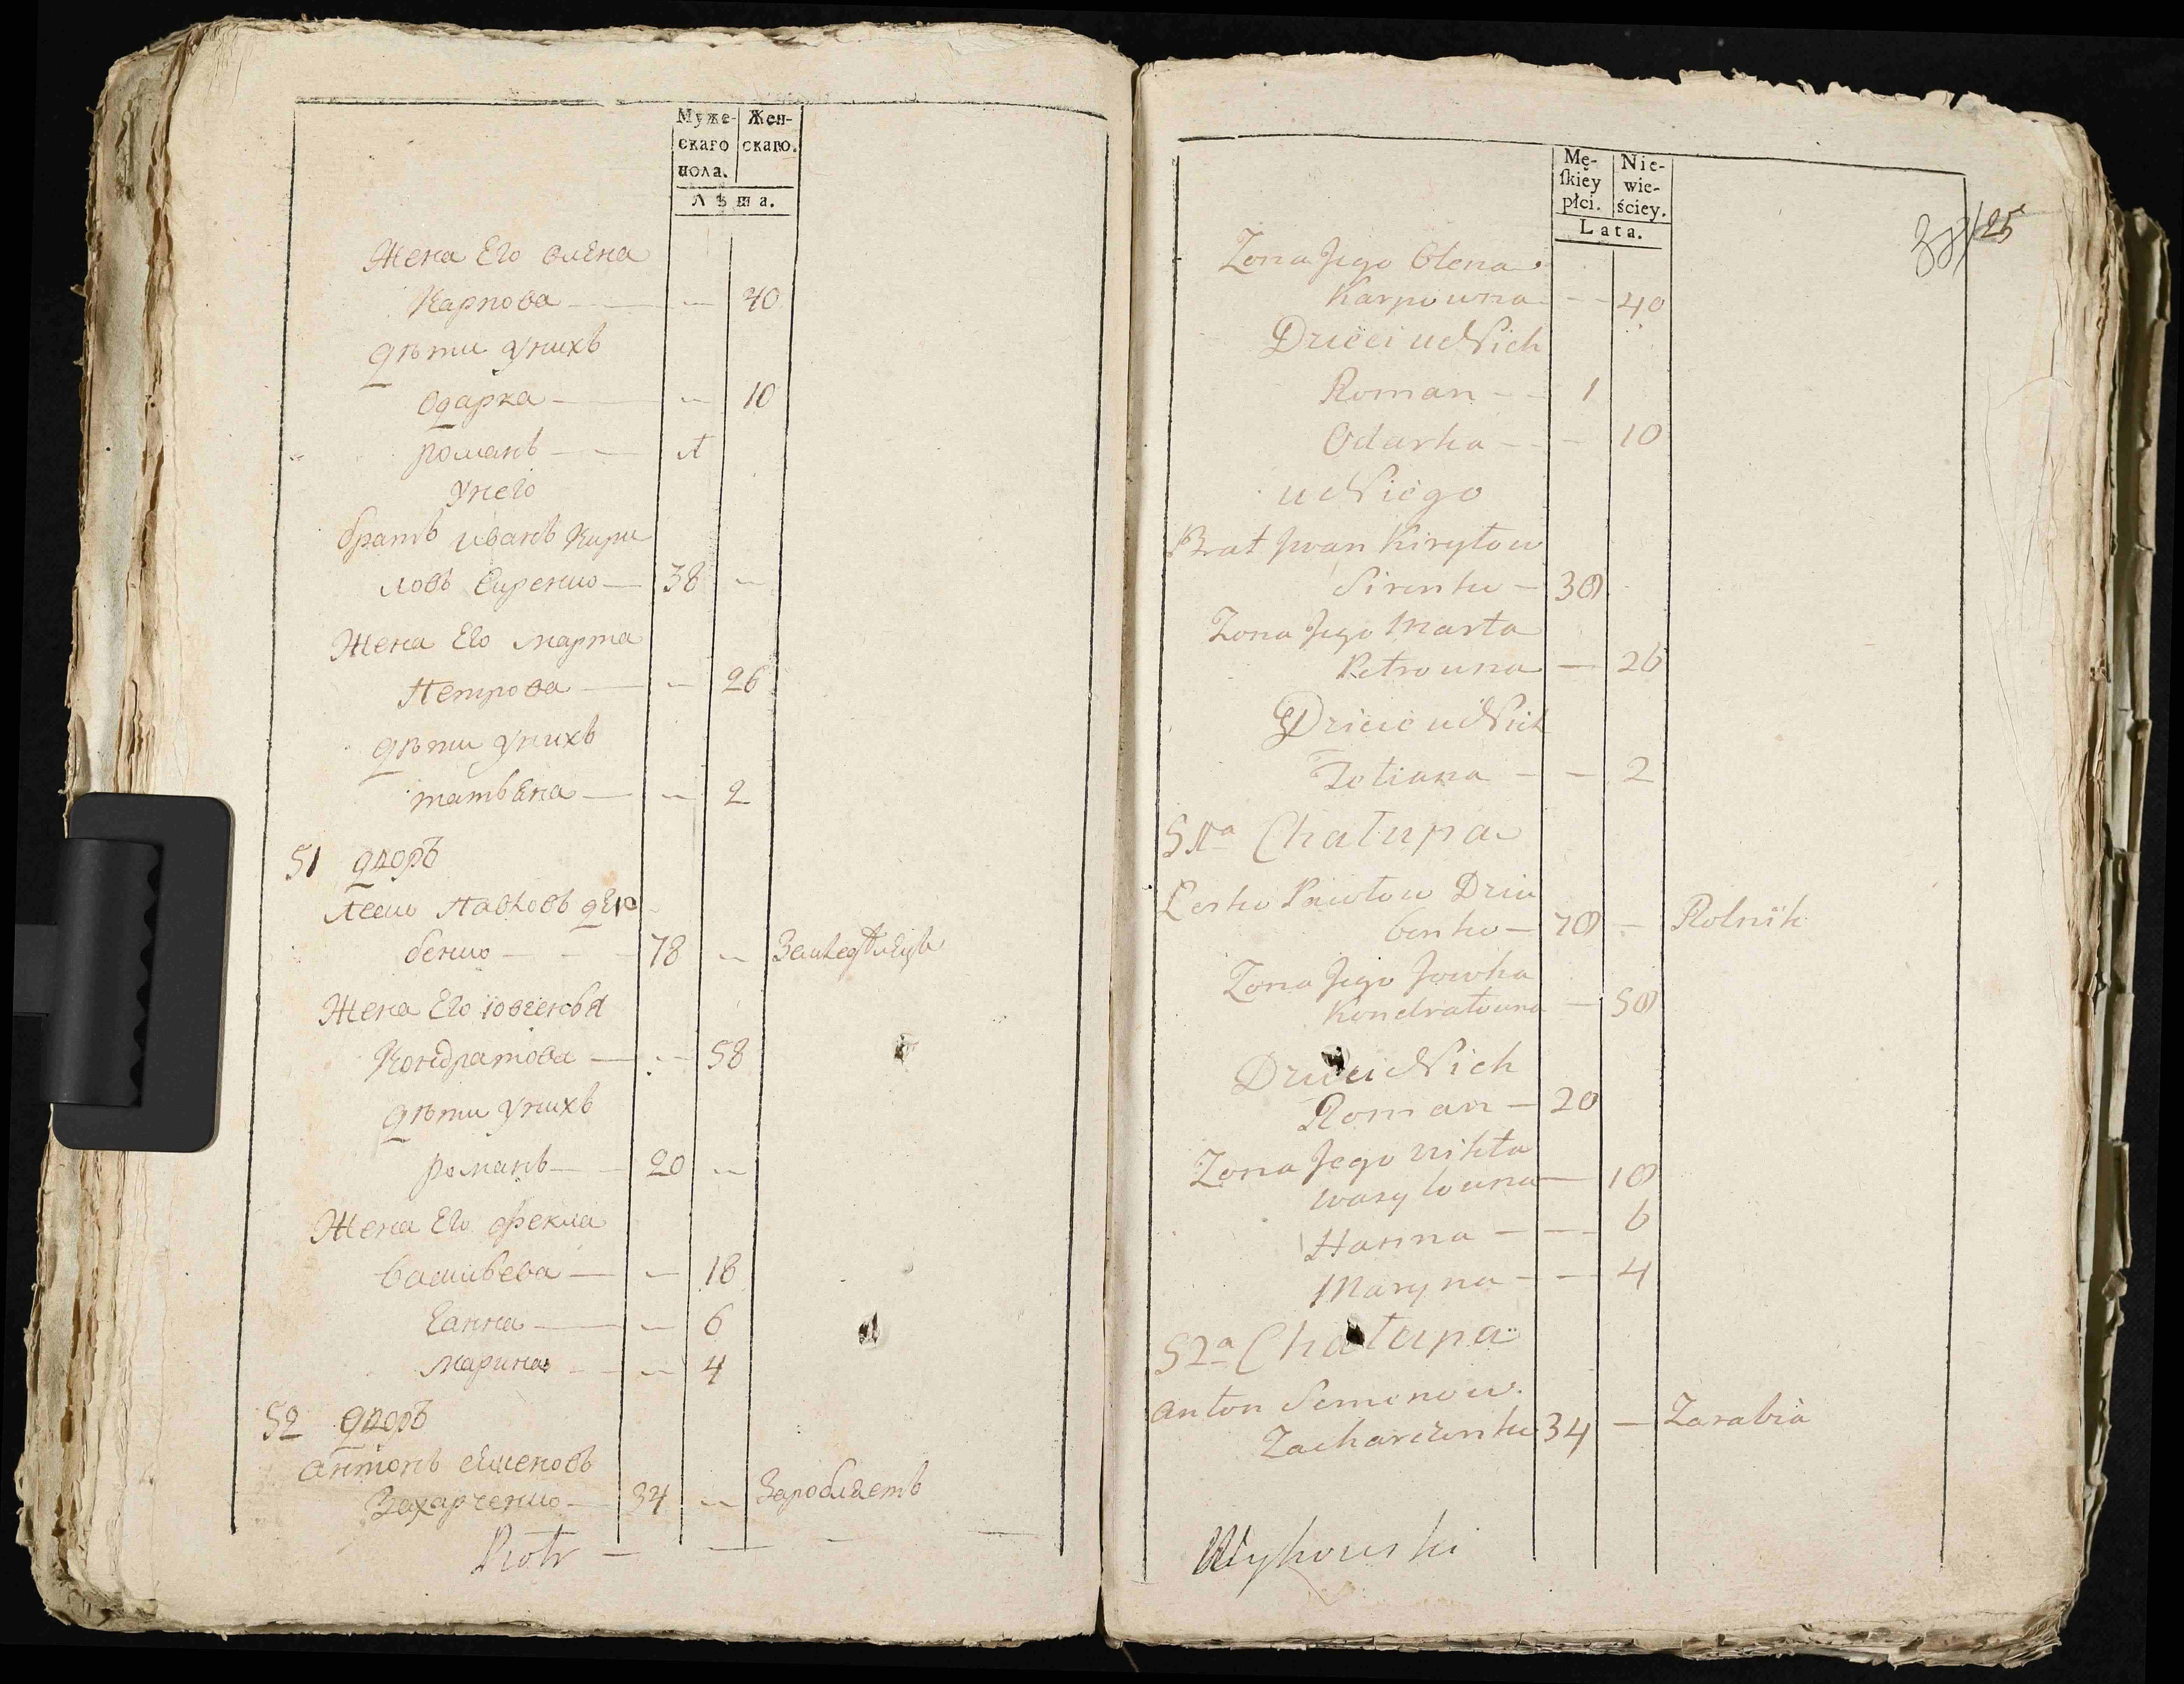 Муже- Жен-
скаго скаго.
пола.
Лѣта.
Жена Его олена
Карпова — — 40
дѣти унихъ
Одарка — — 10
романъ — — 1
унего
братъ иванъ Кири
ловъ Сиренко — 38 —
Жена Его марта
Петрова — — 26
дѣти унихъ
татьяна — — 2
51 дворъ
Леско Павловъ дзю
бенко — — 78 —
Жена Его
Кондратова — — 58
дѣти унихъ
романъ — 20 —
Жена Его фекла
васильева — — 18
Ганна — — 6
марина — — 4
52 дворъ
антонъ семеновъ
Захарченко — 34 — Заробляетъ
Piotr — — —
Mę- Nie-
ſkiey wie-
płci. ściey.
Lata.
25
Zona Jego Olena
Karpowna — — 40
Dzieci u Nich
Roman — — 1
Odarka — — 10
u Niego
Brat Jwan Kiryłow
Sirenko — 38
Zona Jego Marta
Petrowna — 26
Dzieci u Nich
Tetiana — — 2
51a Chałupa
Lesko Pawłow Dziu
benko — 78 — Rolnik
Zona Jego Jowha
Kondratowna — 58
Dzieci u Nich
Roman — 20
Zona Jego
Wasylowna — 18
Hanna — — 6
Maryna — — 4
52a Chałupa
Anton Semenow
Zacharczenko 34 — Zarabia
Wykowski